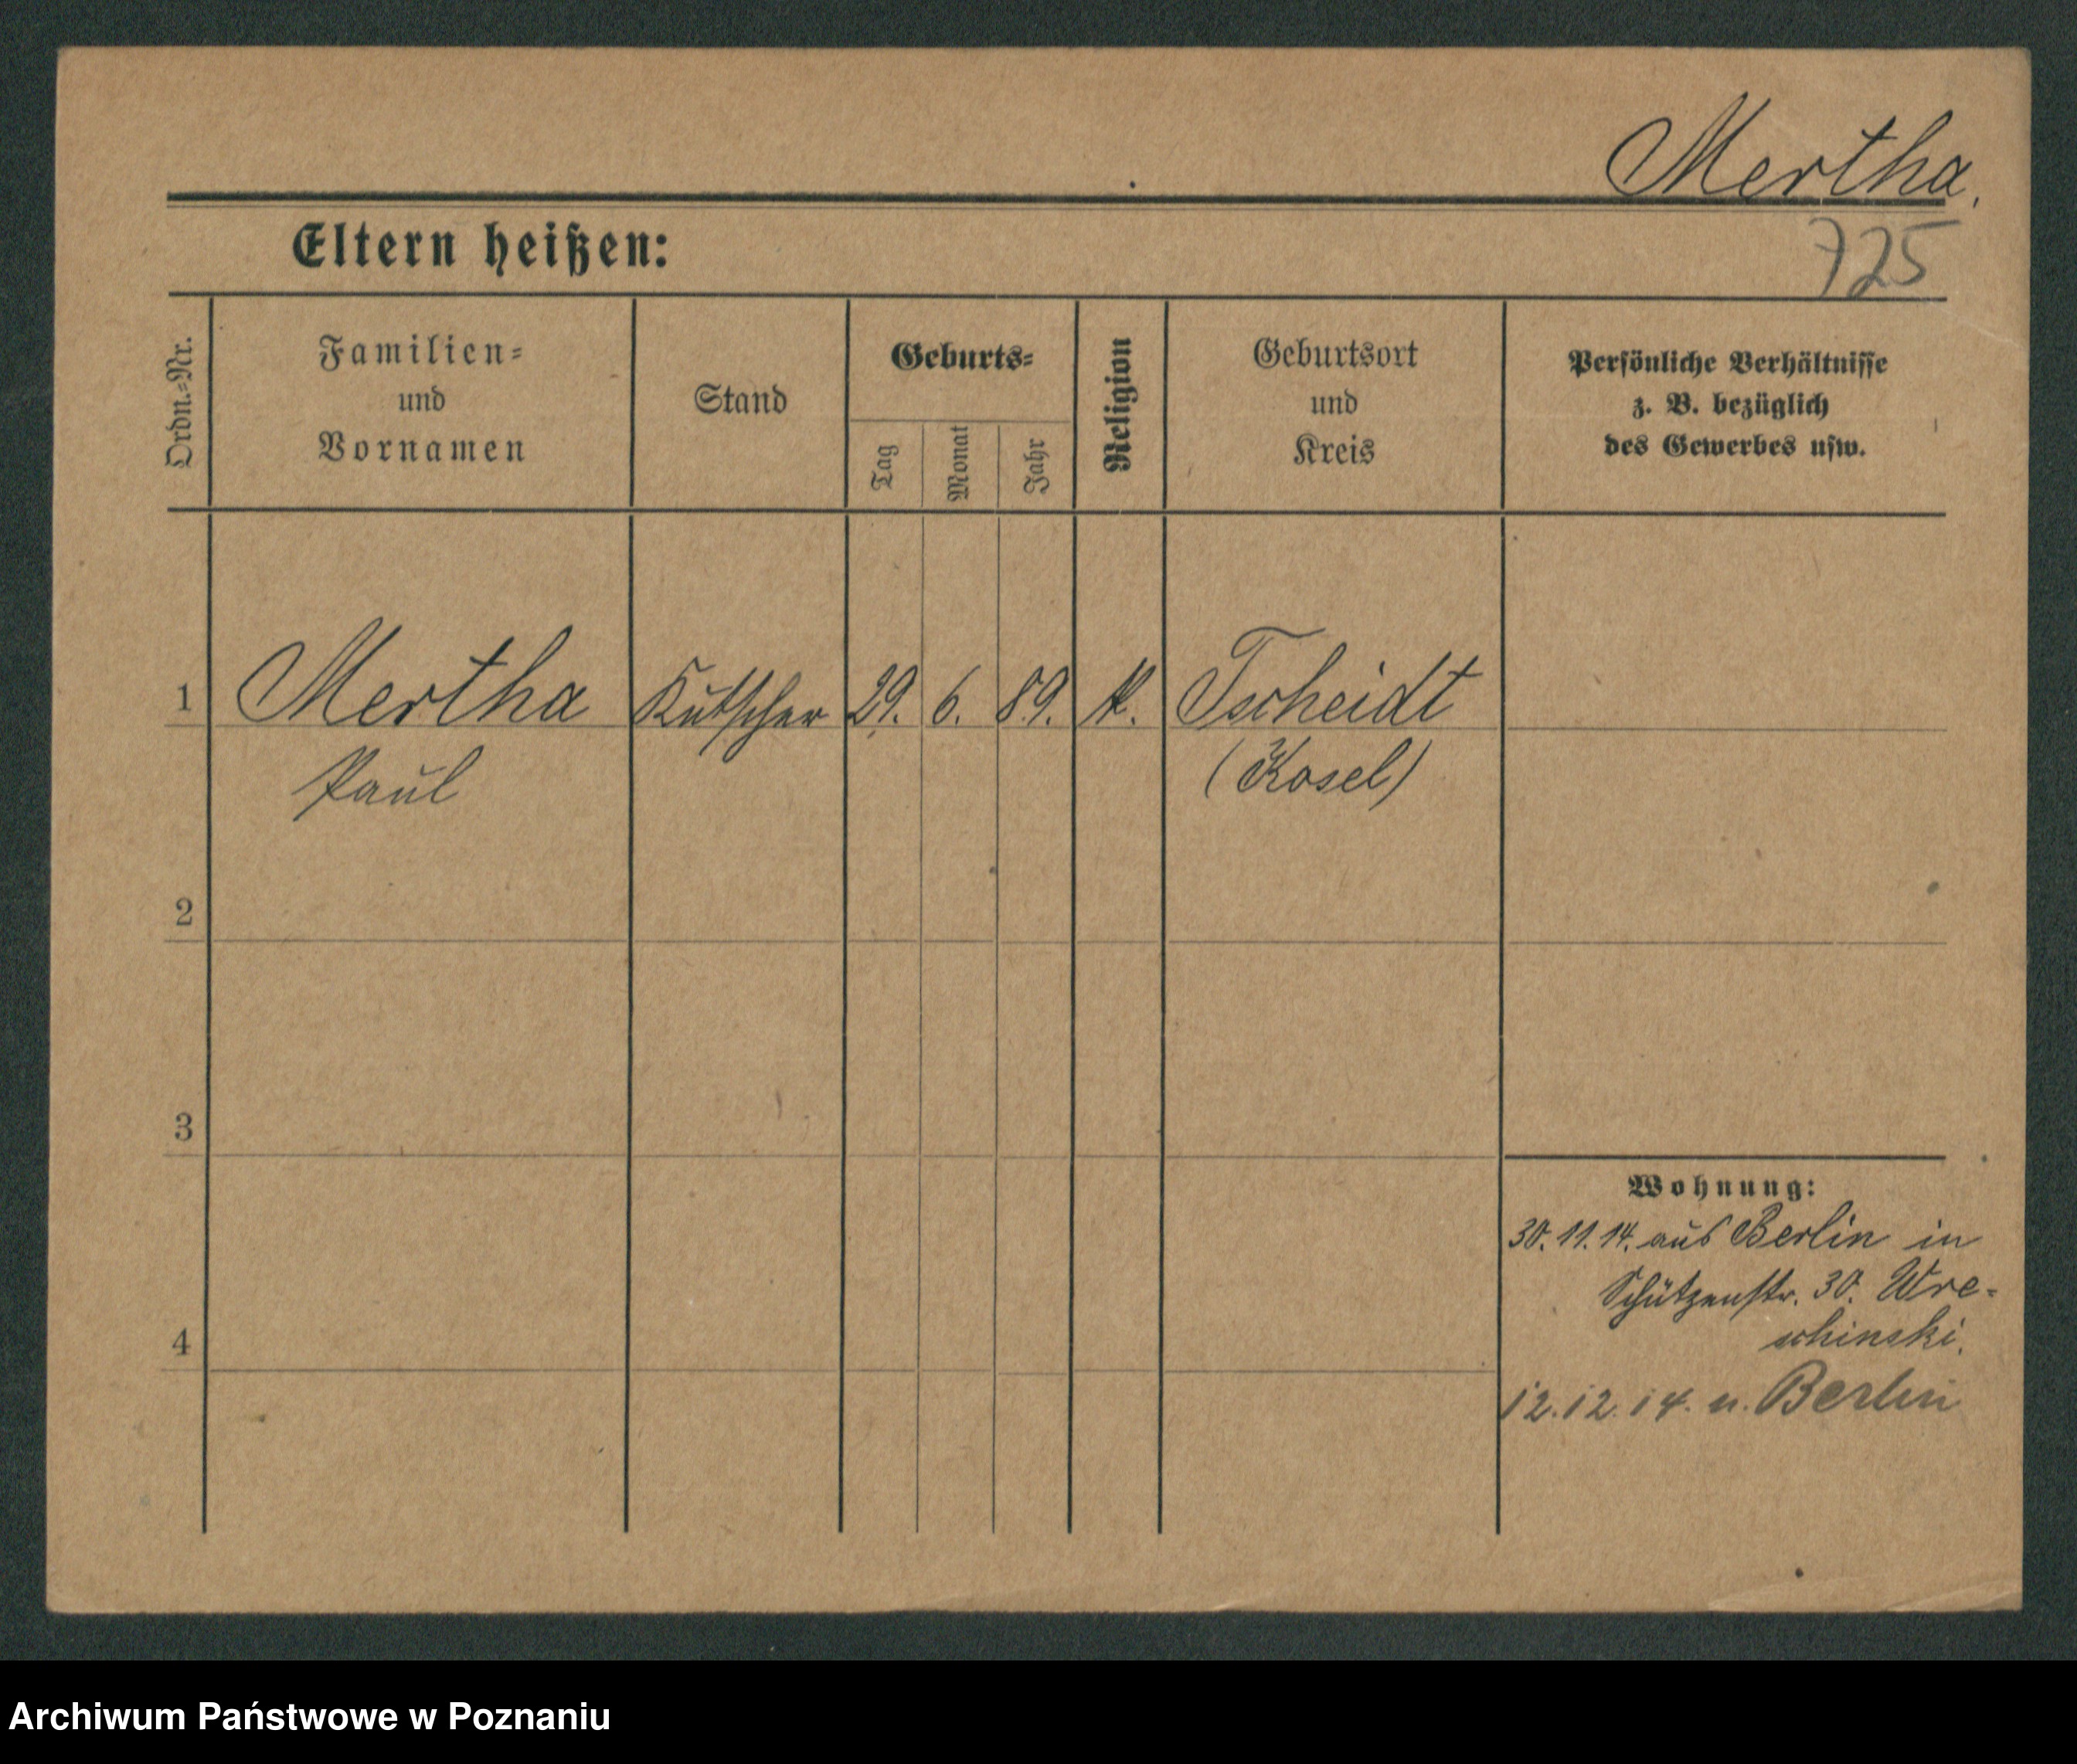 Mertha.
Eltern heißen:
725
Ordn.=Nr.
Familien=
und
Vornamen
Stand
Geburts=
Tag
Monat
Jahr
Religion
Geburtsort
und
Kreis
Persönliche Verhältnisse
z. B. bezüglich
des Gewerbes usw.
1 Mertha Kutscher 29. 6. 89. K. Tscheidt
Paul (Kosel)
2
3
4
Wohnung:
30.11.14. aus Berlin in
Schützenstr. 30. Wre-
schinski.
12.12.14. n. Berlin
Archiwum Państwowe w Poznaniu